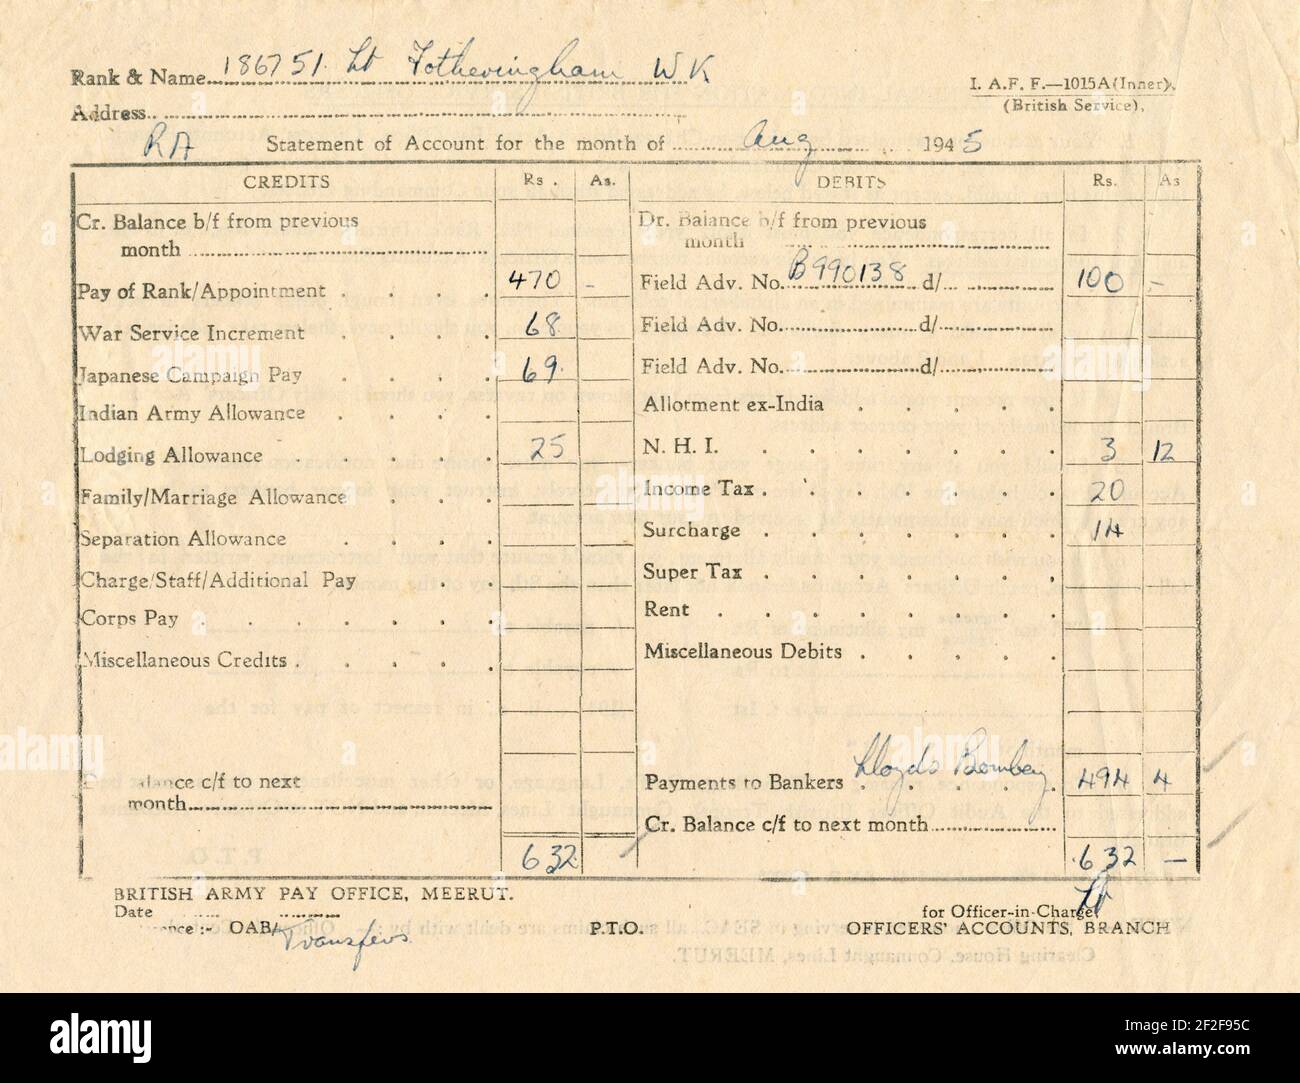 Rank & Name 186751. Lt Fotheringham W K
I. A. F. F.—1015A (Inner).
(British Service).
Address
RA Statement of Account for the month of Aug 1945
CREDITS Rs. As. DEBITS Rs. As
Cr. Balance b/f from previous
month
Dr. Balance b/f from previous
month
Pay of Rank/Appointment 470 -
Field Adv. No. B990138 d/ 100 -
War Service Increment 68
Field Adv. No. d/
Japanese Campaign Pay 69.
Field Adv. No. d/
Indian Army Allowance
Allotment ex-India
Lodging Allowance 25
N. H. I. 3 12
Family/Marriage Allowance
Income Tax 20
Separation Allowance
Surcharge 14
Charge/Staff/Additional Pay
Super Tax
Corps Pay
Rent
Miscellaneous Credits
Miscellaneous Debits
Balance c/f to next
month
Payments to Bankers Lloyds Bombay 494 4
Cr. Balance c/f to next month
632 632 -
BRITISH ARMY PAY OFFICE, MEERUT.
Date
OABA Transfers
P.T.O.
Lt
for Officer-in-Charge
OFFICERS' ACCOUNTS, BRANCH
alamy
Image ID: 2F2F95C
www.alamy.com